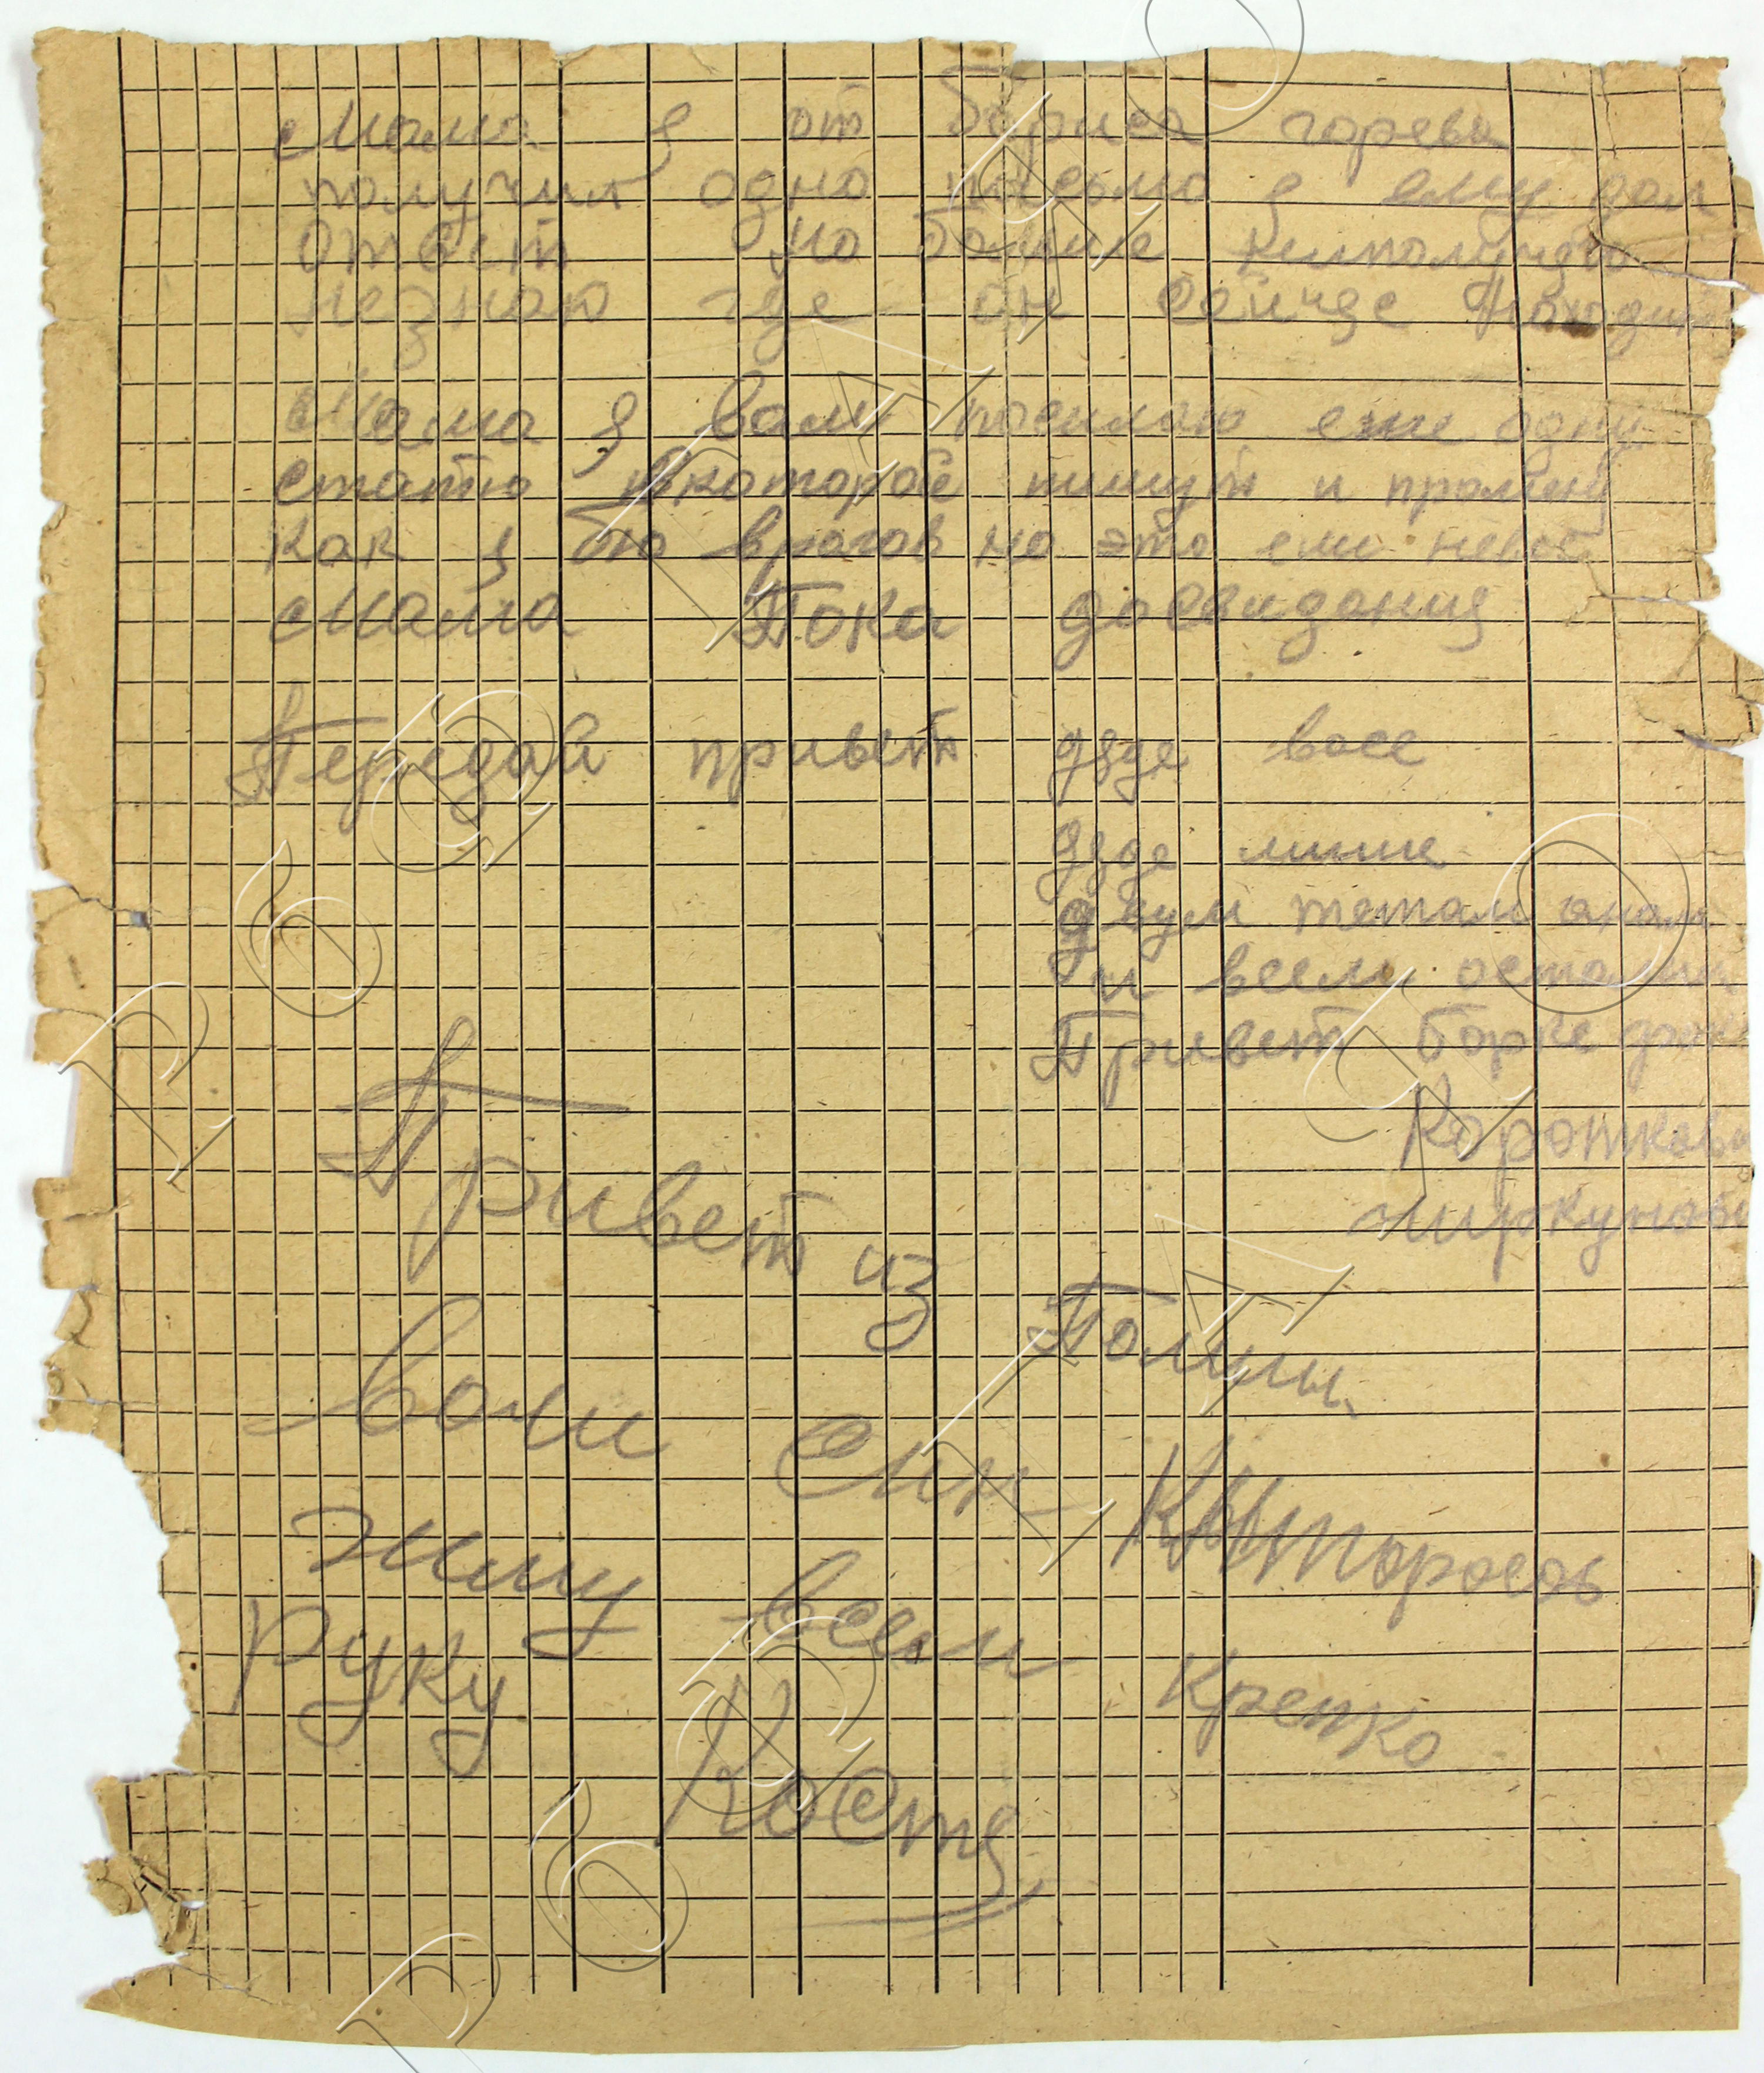 Мама я от Бориса горева
получил одно письмо я ему дал
ответ но больше неполучаю
незнаю где он сейчас находит
Мама я вам посилаю еще одну
статю вкоторой пишут и
как я бю врагов но это еще
Мама Пока досвидания
Передай привет дяде васе
дяде мише
двум тетям
и всем осталь
Привет борке
Короткова
Привет из Полши.
ваш син
жму всем крепко
руку
Костя